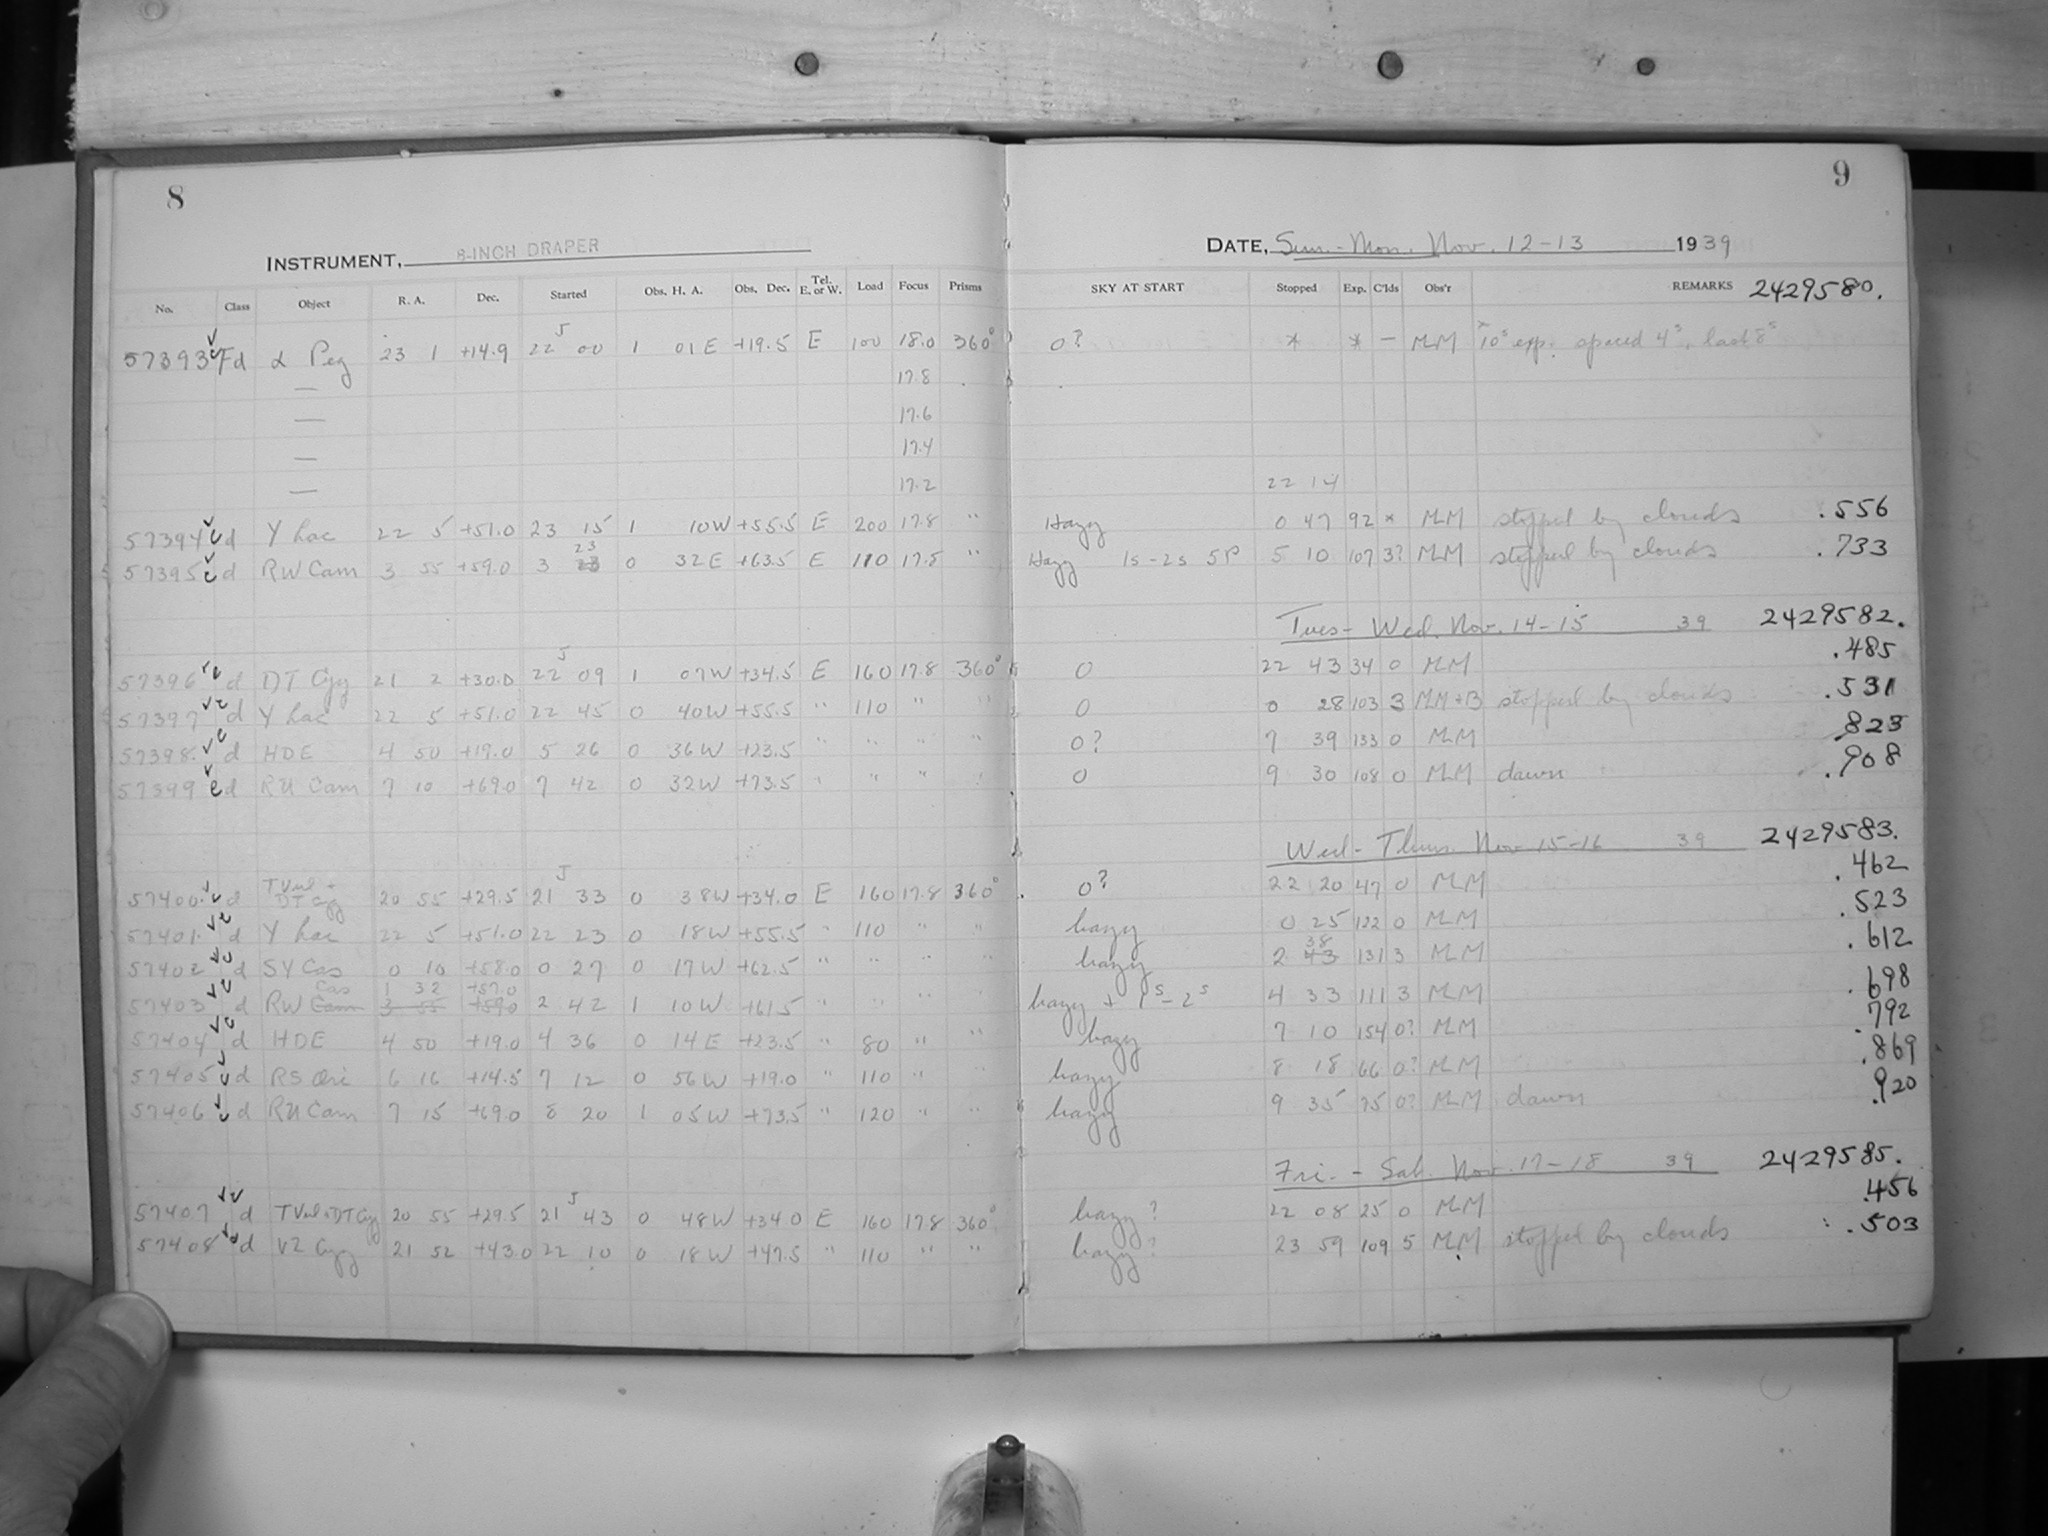 8
INSTRUMENT, 8-INCH DRAPER
No. Class Object R. A. Dec. Started Obs. H. A. Obs. Dec. Tel. E. or W. Load Focus Prisms
57393 Fd α Peg 23 1 +14.9 22 00 1 01 E +19.5 E 100 18.0 360°
— 17.8
— 17.6
— 17.4
— 17.2
57394 d Y Lac 22 5 +51.0 23 15 1 10W +55.5 E 200 17.8 "
57395 d RW Cam 3 55 +59.0 3 23 0 32 E +63.5 E 110 17.8 "
57396 d DT Cyg 21 2 +30.0 22 09 1 07W +34.5 E 160 17.8 360°
57397 d Y Lac 22 5 +51.0 22 45 0 40W +55.5 " 110 " "
57398 d HDE 4 50 +19.0 5 26 0 36W +23.5 " " " "
57399 d RU Cam 7 10 +69.0 7 42 0 32W +73.5 " " " "
57400 d T Vul + DT Cyg 20 55 +29.5 21 33 0 38W +34.0 E 160 17.8 360°
57401 d Y Lac 22 5 +51.0 22 23 0 18W +55.5 " 110 " "
57402 d SY Cas 0 10 +58.0 0 27 0 17W +62.5 " " " "
Cas 1 32 +57.0
57403 d RW Cam 3 55 +59.0 2 42 1 10W +61.5 " " " "
57404 d HDE 4 50 +19.0 4 36 0 14 E +23.5 " 80 " "
57405 d RS Ori 6 16 +14.5 7 12 0 56W +19.0 " 110 " "
57406 d RU Cam 7 15 +69.0 8 20 1 05W +73.5 " 120 " "
57407 d T Vul + DT Cyg 20 55 +29.5 21 43 0 48W +34.0 E 160 17.8 360°
57408 d VZ Cyg 21 52 +43.0 22 10 0 18W +47.5 " 110 " "
9
DATE, Sun. - Mon. Nov. 12-13 1939
SKY AT START Stopped Exp. C'lds Obs'r REMARKS 2429580.
0? * * — MM * 10s exp. spaced 4s, last 8s
22 14
Hazy 0 47 92 * MM stopped by clouds .556
Hazy 1s-2s SP 5 10 107 3? MM stopped by clouds .733
Tues - Wed. Nov. 14-15 39 2429582.
0 22 43 34 0 MM .485
0 0 28 103 3 MM+B stopped by clouds .531
0? 7 39 133 0 MM .823
0 9 30 108 0 MM dawn .908
Wed - Thurs. Nov 15-16 39 2429583.
0? 22 20 47 0 MM .462
hazy 0 25 122 0 MM .523
38
hazy 2 43 131 3 MM .612
hazy + 1s-2s 4 33 111 3 MM .698
hazy 7 10 154 0? MM .792
hazy 8 18 66 0? MM .869
hazy 9 35 75 0? MM dawn .920
Fri. - Sat. Nov. 17-18 39 2429585.
hazy? 22 08 25 0 MM .456
hazy? 23 59 109 5 MM stopped by clouds .503